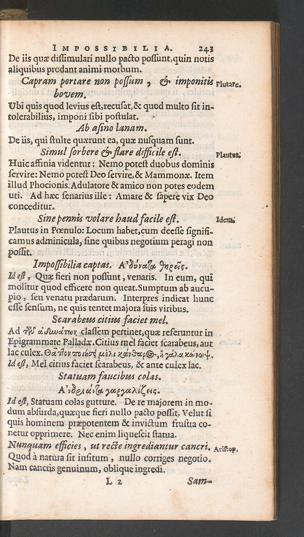 IMPOSSIBILIA. 243
De iis quæ dissimulari nullo pacto possunt, quin notis
aliquibus prodant animi morbum.
Capram portare non possum, & imponitis Plutarc.
bovem.
Ubi quis quod levius est, recusat, & quod multo sit in-
tolerabilius, imponi sibi postulat.
Ab asino lanam.
De iis, qui stulte quærunt ea, quæ nusquam sunt.
Simul sorbere & flare difficile est. Plautus.
Huic affinia videntur: Nemo potest duobus dominis
servire: Nemo potest Deo servire, & Mammonæ. Item
illud Phocionis. Adulatore & amico non potes eodem
uti. Ad hæc senarius ille: Amare & sapere vix Deo
conceditur.
Sine pennis volare haud facile est. Idem.
Plautus in Pœnulo: Locum habet, cum deesse signifi-
camus adminicula, sine quibus negotium peragi non
possit.
Impossibilia captas. Ἀδύνατα θηρεῖς.
Id est, Quæ fieri non possunt, venaris. In eum, qui
molitur quod efficere non queat. Sumptum ab aucu-
pio, seu venatu prædarum. Interpres indicat hunc
esse sensum, ne quis tentet majora suis viribus.
Scarabeus citius faciet mel.
Ad τῶν ἀδυνάτων classem pertinet, quæ referuntur in
Epigrammate Palladæ. Citius mel faciet scarabeus, aut
lac culex. Θᾶττον ποιήσῃ μέλι κάνθαρος, ἢ γάλα κώνωψ.
Id est, Mel citius faciet scarabeus, & ante culex lac.
Statuam faucibus colas.
Ἀνδριάντα γαργαλίζεις.
Id est, Statuam colas gutture. De re majorem in mo-
dum absurda, quæque fieri nullo pacto possit. Velut si
quis hominem præpotentem & invictum frustra co-
netur opprimere. Nec enim liquescit statua.
Nunquam efficies, ut recte ingrediantur cancri. Aristop.
Quod à natura sit insitum, nullo corriges negotio.
Nam cancris genuinum, oblique ingredi.
L 2 Sam-